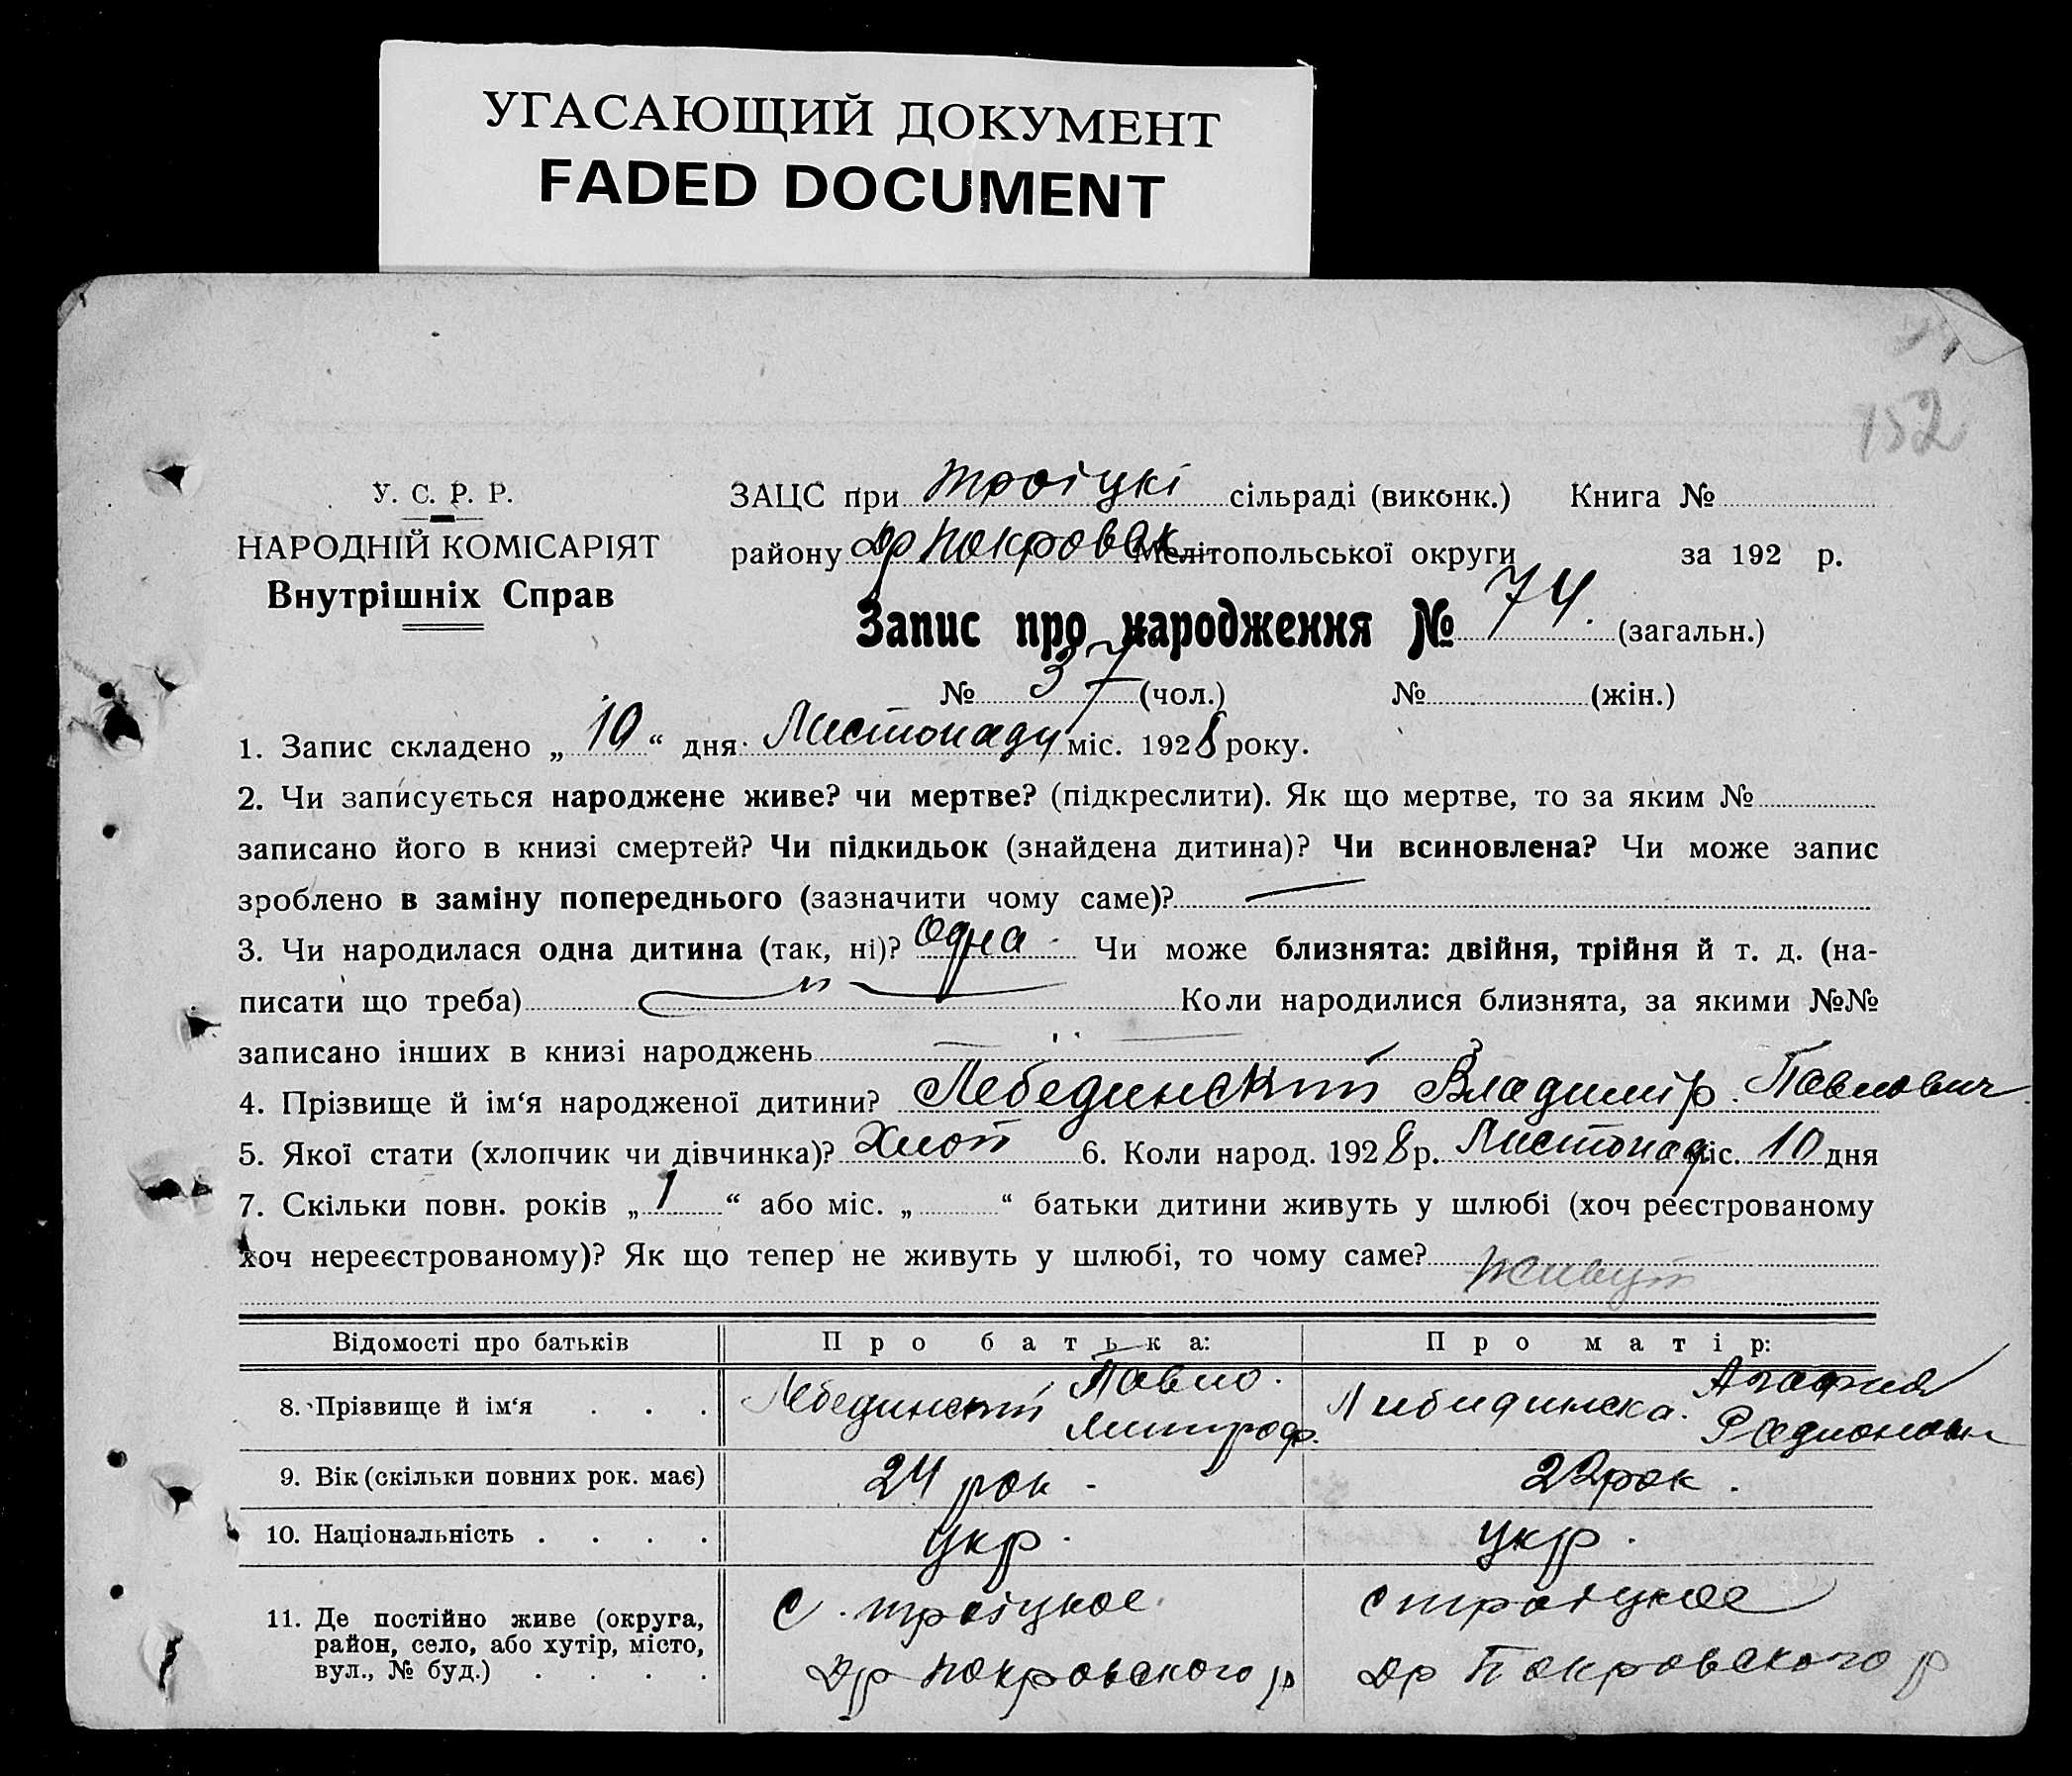 УГАСАЮЩИЙ ДОКУМЕНТ
FADED DOCUMENT
152
У. С. Р. Р.
НАРОДНІЙ КОМІСАРІЯТ
Внутрішніх Справ
ЗАЦС при Троіцкі сільраді (виконк.) Книга №
району Др Покровск Мелітопольської округи за 192 р.
Запис про народження № 74. (загальн.)
№ 37 (чол.) № (жін.)
1. Запис складено „ 10 “ дня Листопаду міс. 1928 року.
2. Чи записується народжене живе? чи мертве? (підкреслити). Як що мертве, то за яким №
записано його в книзі смертей? Чи підкидьок (знайдена дитина)? Чи всиновлена? Чи може запис
зроблено в заміну попереднього (зазначити чому саме)? —
3. Чи народилася одна дитина (так, ні)? Одна Чи може близнята: двійня, трійня й т. д. (на-
писати що треба) Коли народилися близнята, за якими №№
записано інших в книзі народжень ?
4. Прізвище й ім‘я народженої дитини? Лебединский Владимір. Павлович
5. Якої стати (хлопчик чи дівчинка)? Хлоп 6. Коли народ. 1928 р. Листопад міс. 10 дня
7. Скільки повн. років „ 1 “ або міс. „ “ батьки дитини живуть у шлюбі (хоч реєстрованому
хоч нереєстрованому)? Як що тепер не живуть у шлюбі, то чому саме? живут
Відомості про батьків Про батька: Про матір:
8. Прізвище й ім‘я . . . Лебединский Павло. Митроф. Либидинска. Агафия Родионовн
9. Вік (скільки повних рок. має) 24 рок - 22 рок .
10. Національність . . . . Укр. Укр.
11. Де постійно живе (округа, район, село, або хутір, місто, вул., № буд.) . . . .
С. Троіцкое. С Троіцкое
Др Покровского р Др Покровского р